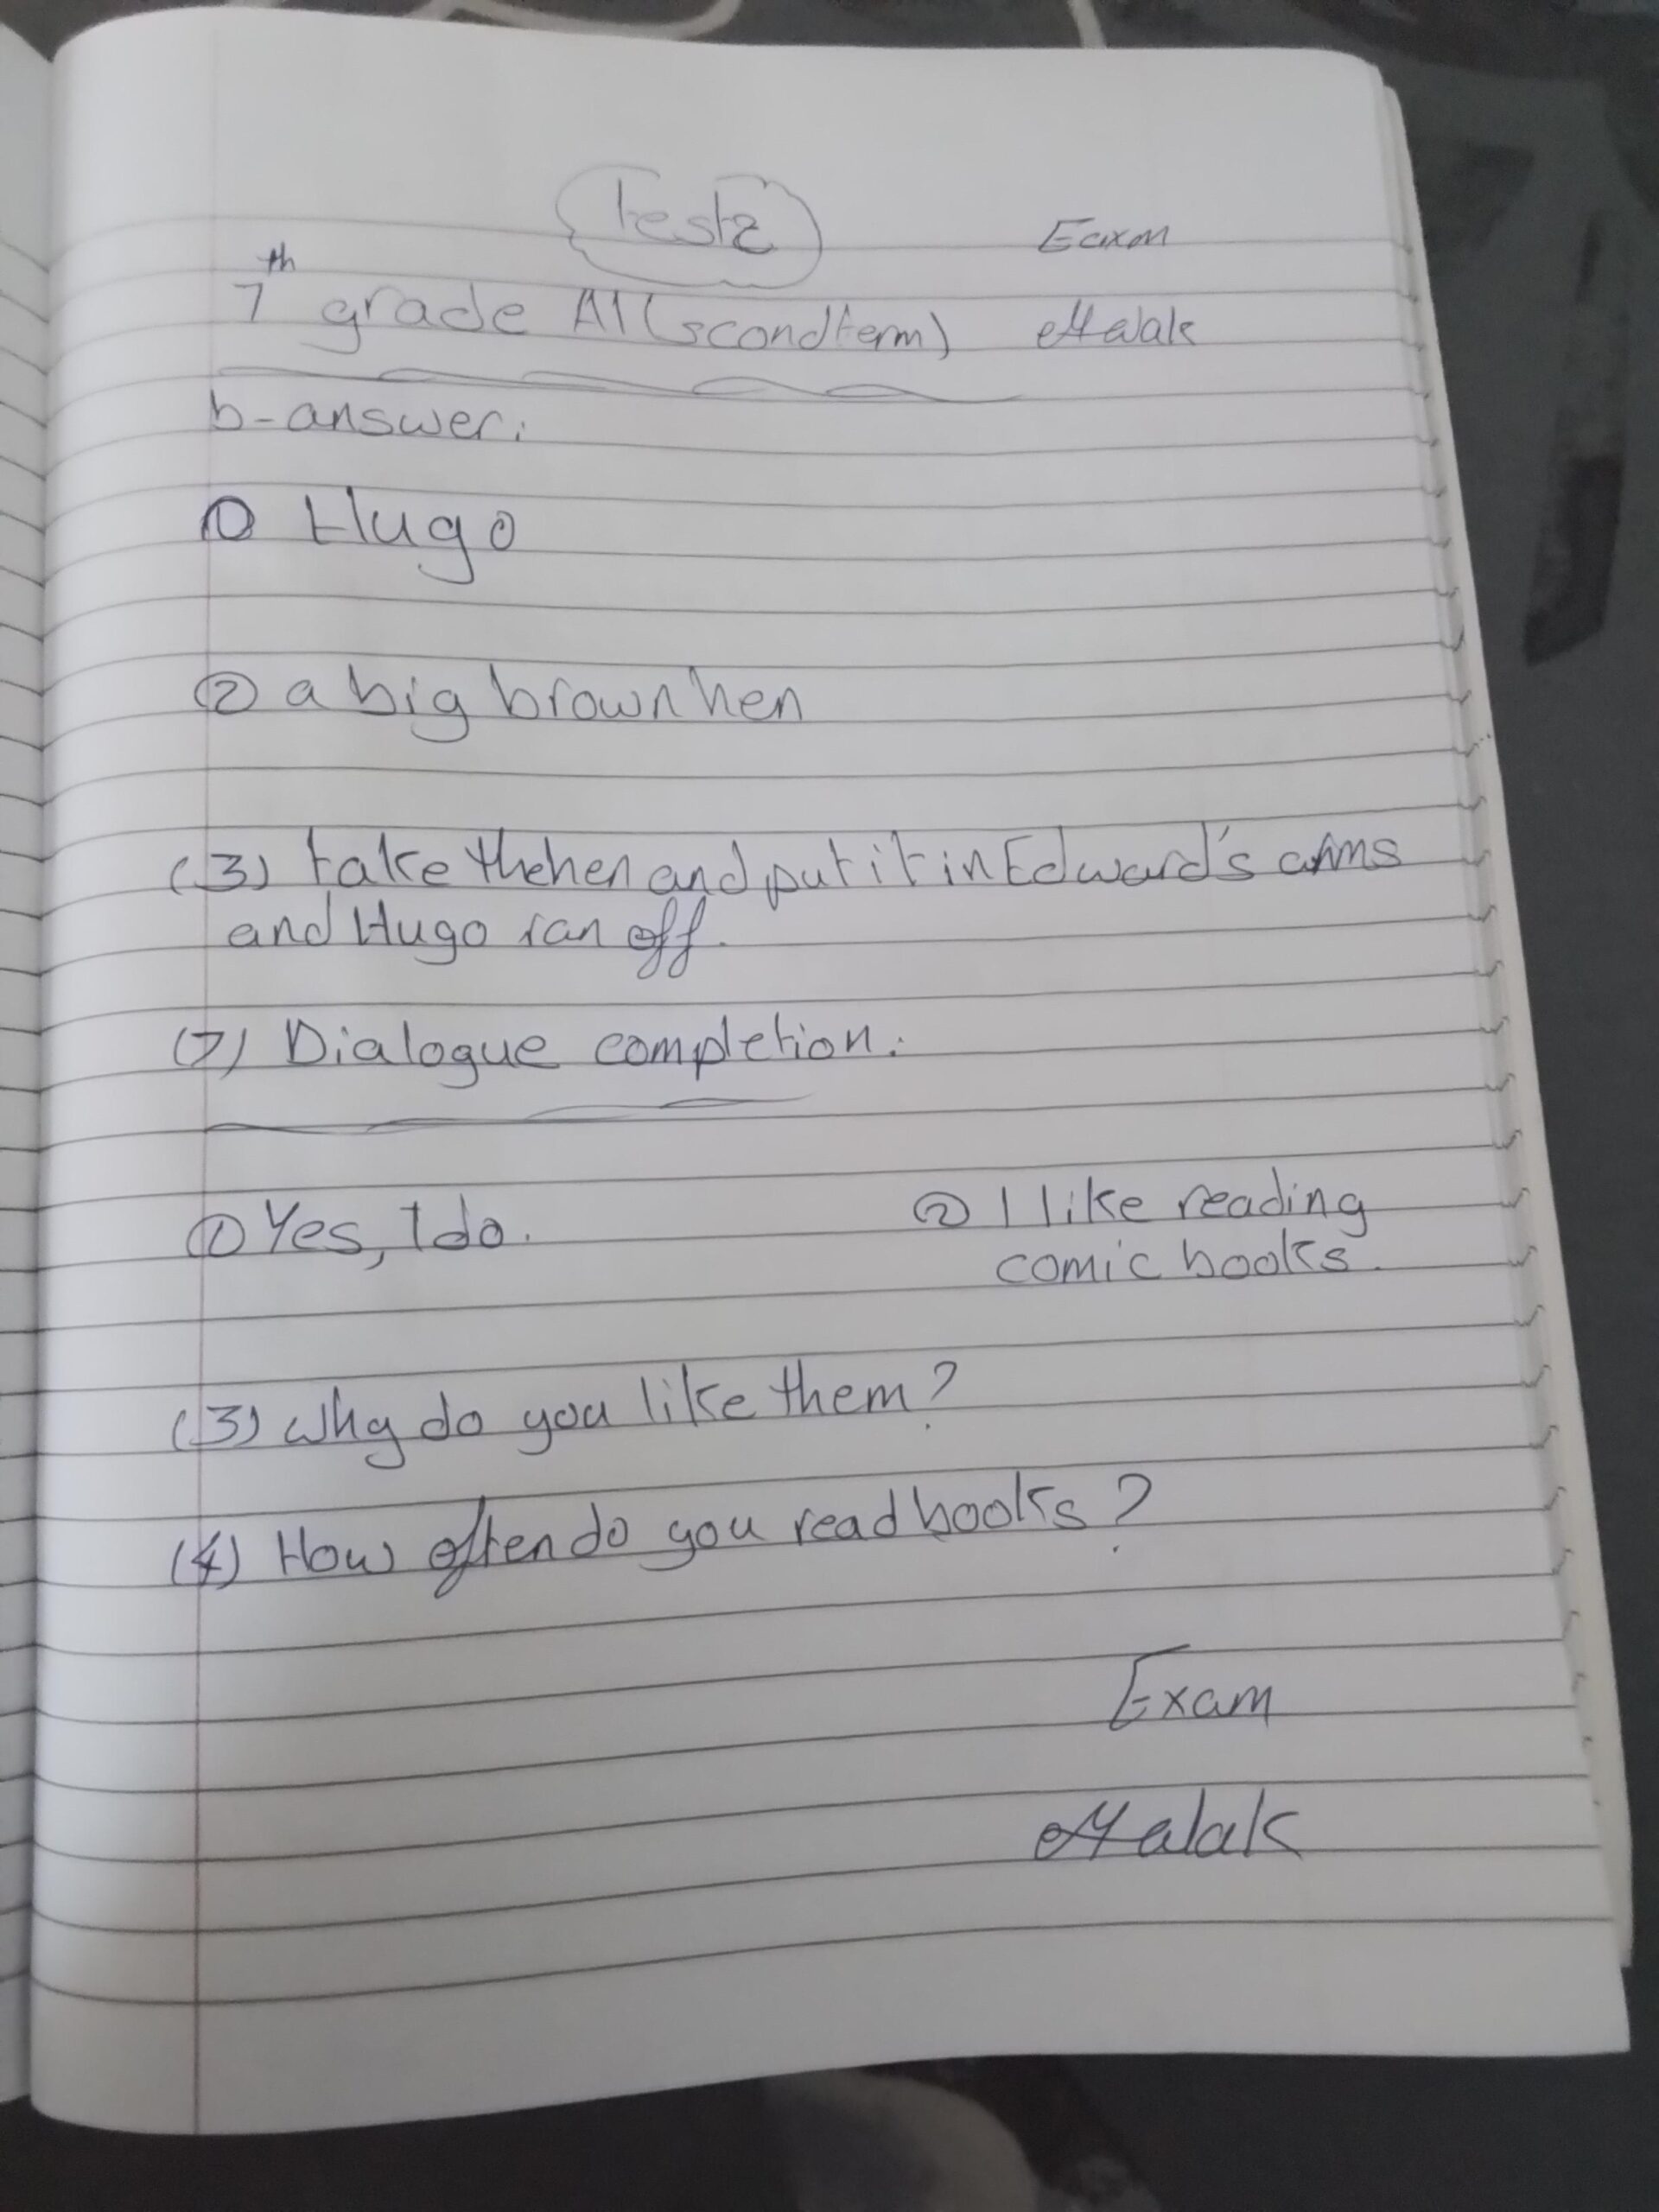 Test 2
Exam
7th grade A1 (scond term) Malak
b- answer:
① Hugo
② a big brown hen
(3) take the hen and put it in Edward's arms
and Hugo ran off.
(7) Dialogue completion:
① Yes, I do.
② I like reading
comic books.
(3) Why do you like them?
(4) How often do you read books?
Exam
Malak